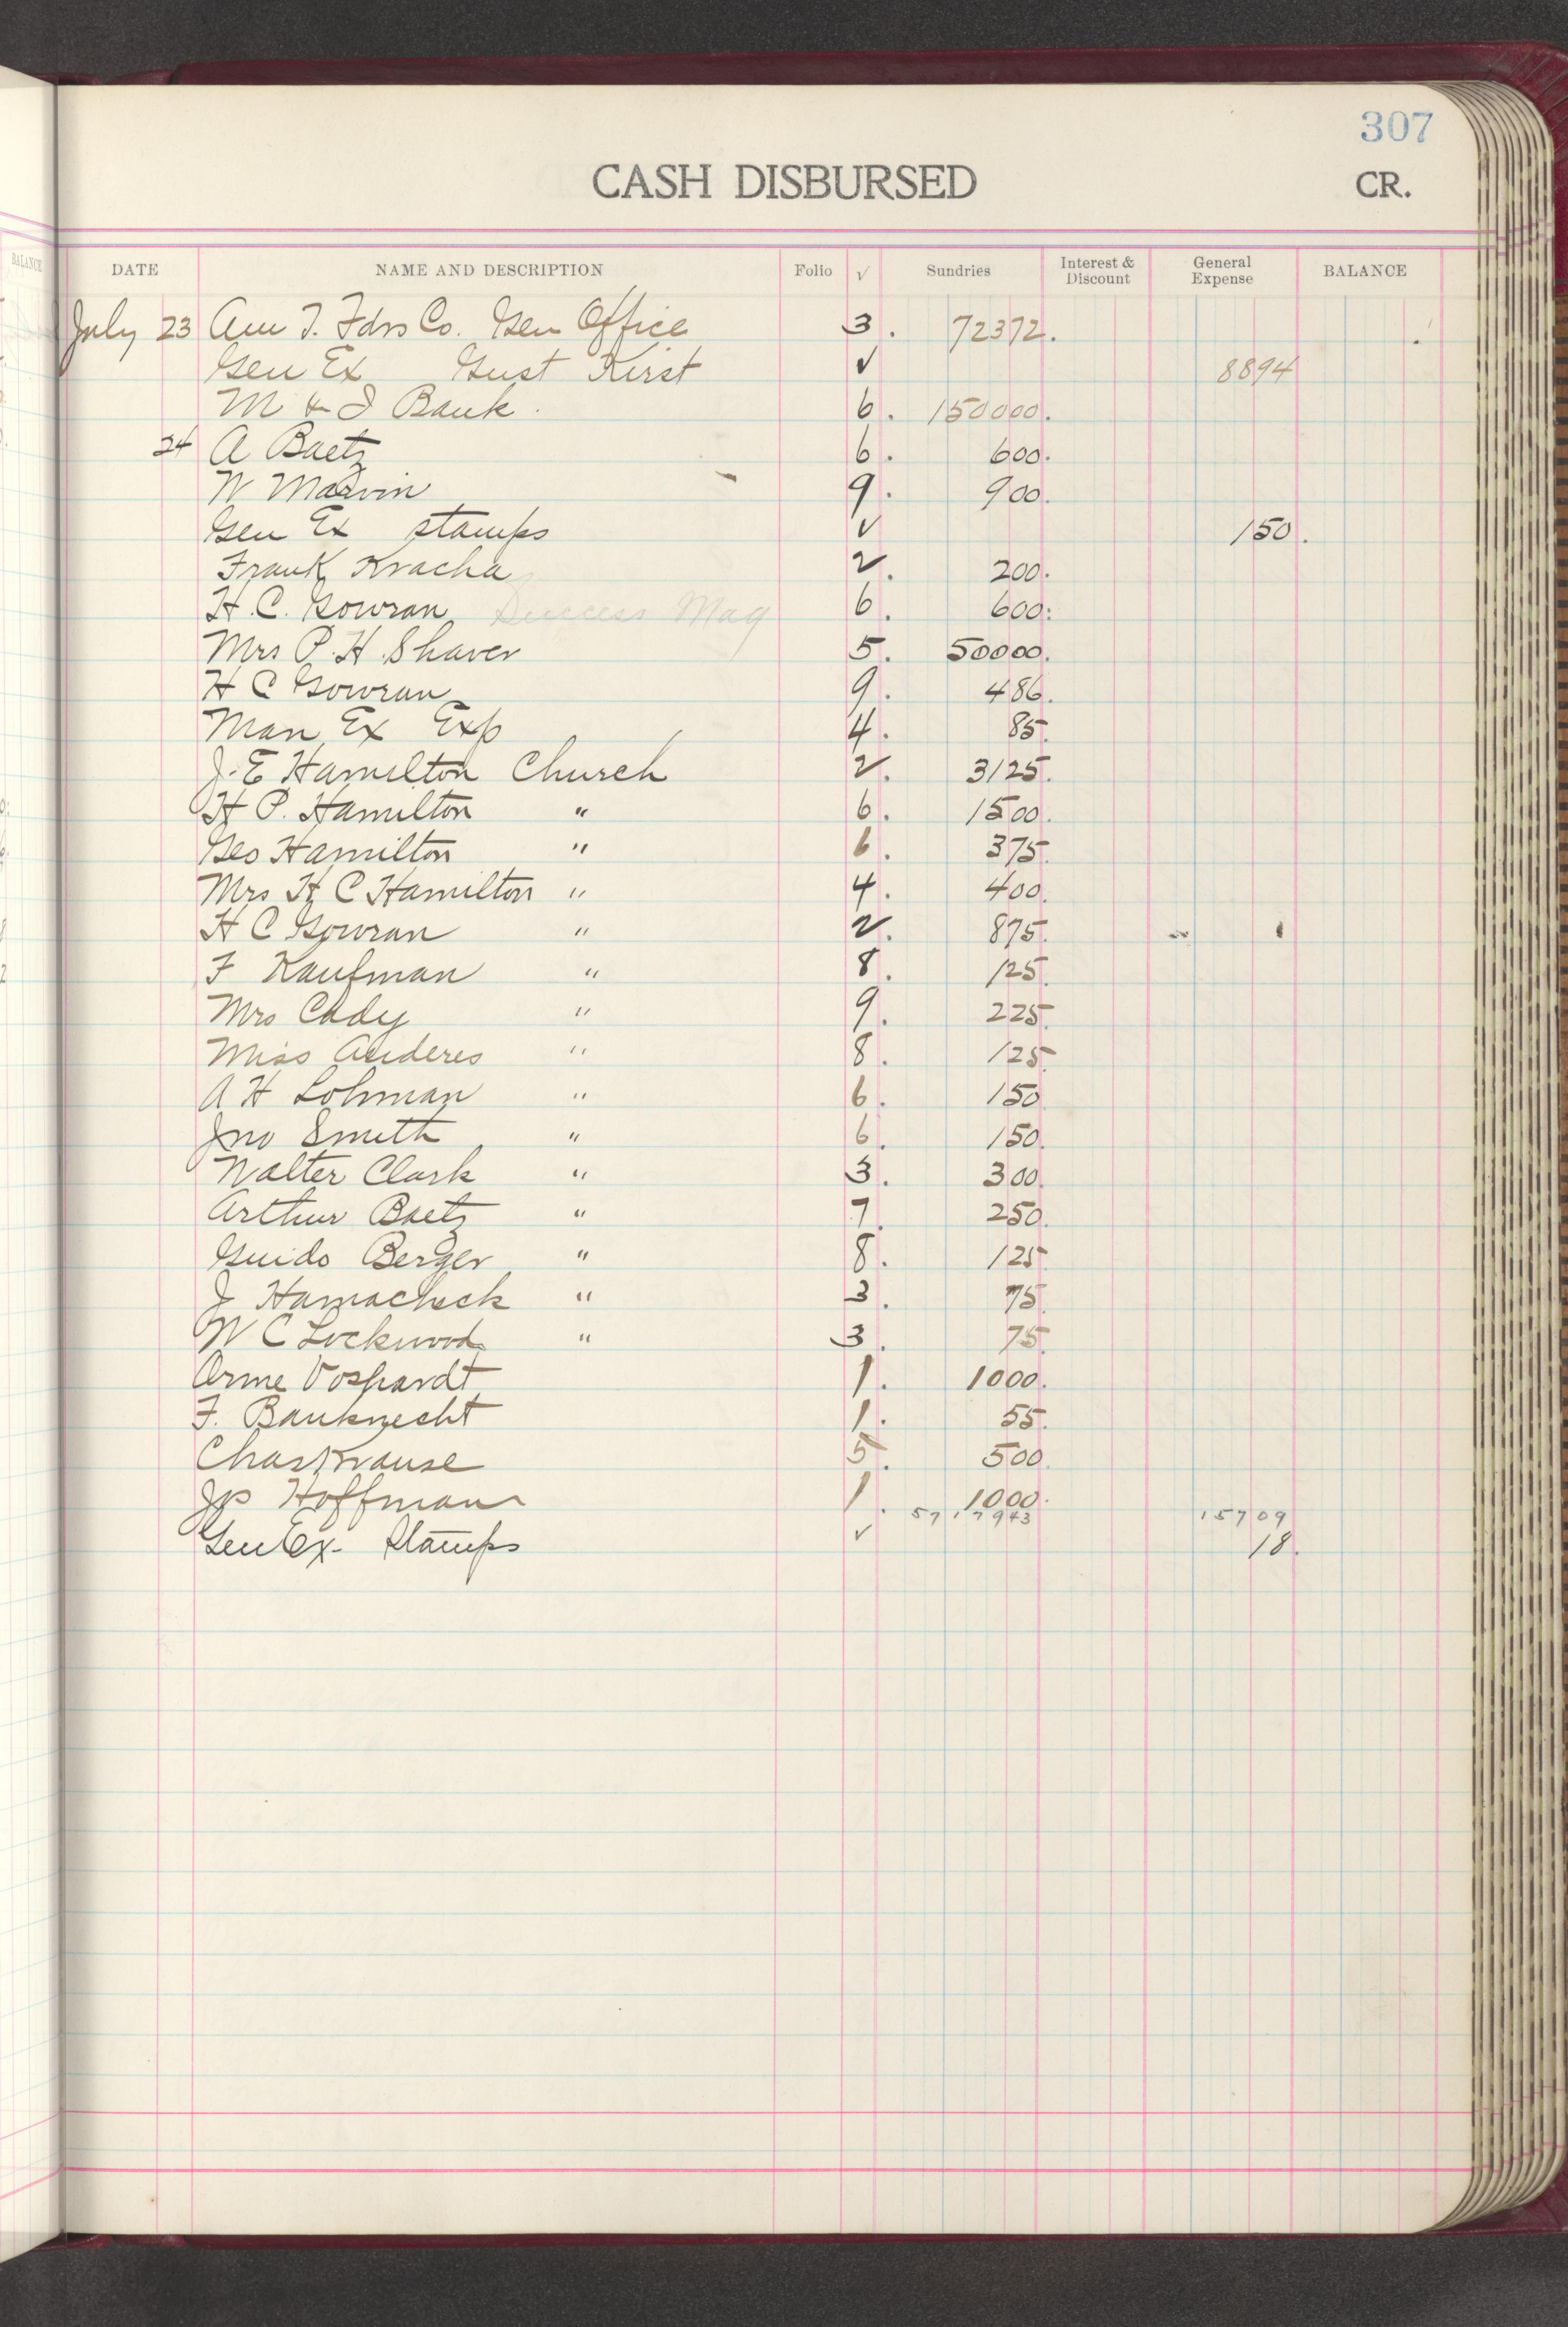 307
CASH DISBURSED CR.
BALANCE DATE NAME AND DESCRIPTION Folio √ Sundries Interest & Discount General Expense BALANCE
July 23 Am T. Fdrs Co. Gen Office 3. 72372.
Gen Ex Gust Kirst √ 8894
M & I Bank. 6. 150000.
24 A Baetz 6. 600.
W Marvin 9. 900.
Gen Ex stamps √ 150.
Frank Kracha 2. 200.
H. C. Gowran Success Mag 6. 600.
Mrs P. H. Shaver 5. 50000.
H C Gowran 9. 486.
Man Ex Exp 4. 85.
J. E Hamilton Church 2. 3125.
H P. Hamilton " 6. 1500.
Geo Hamilton " 6. 375.
Mrs H C Hamilton " 4. 400.
H C Gowran " 2. 875.
F Kaufman " 8. 125.
Mrs Cady " 9. 225.
Miss Anderes " 8. 125.
A H Lohman " 6. 150
Jno Smith " 6. 150.
Walter Clark " 3. 300.
Arthur Baetz " 7. 250.
Guido Berger " 8. 125.
J Hamacheck " 3. 75.
W C Lockwood " 3. 75.
Arme Vospardt 1. 1000.
F. Bauknecht 1. 55.
Chas Krause 5. 500.
Jos Hoffman 1. 1000.
15709
Gen Ex- Stamps √ 18.